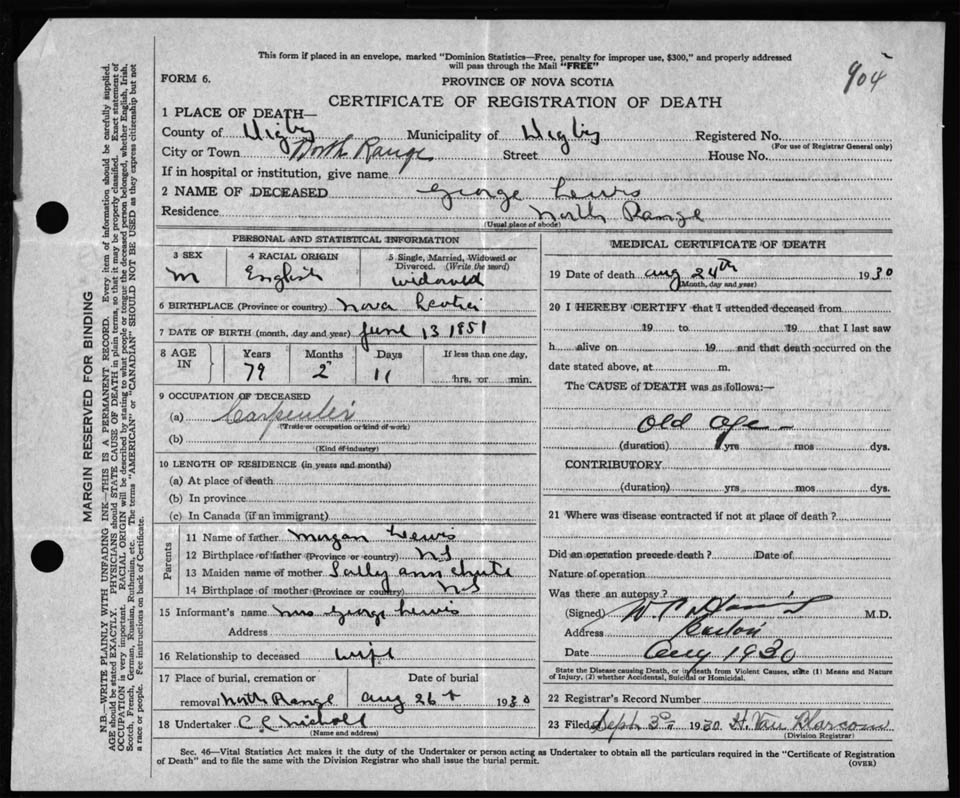 This form if placed in an envelope, marked "Dominion Statistics—Free, penalty for improper use, $300," and properly addressed
will pass through the Mail "FREE"
904
FORM 6.
PROVINCE OF NOVA SCOTIA
CERTIFICATE OF REGISTRATION OF DEATH
1 PLACE OF DEATH—
County of Digby Municipality of Digby Registered No.
(For use of Registrar General only)
City or Town North Range Street House No.
If in hospital or institution, give name
2 NAME OF DECEASED George Lewis
Residence North Range
(Usual place of abode)
PERSONAL AND STATISTICAL INFORMATION
3 SEX 4 RACIAL ORIGIN 5 Single, Married, Widowed or Divorced. (Write the word)
M English widowed
6 BIRTHPLACE (Province or country) Nova Scotia
7 DATE OF BIRTH (month, day and year) June 13 1851
8 AGE IN Years Months Days If less than one day,
79 2 11 hrs. or min.
9 OCCUPATION OF DECEASED
(a) Carpenter
(Trade or occupation or kind of work)
(b)
(Kind of industry)
10 LENGTH OF RESIDENCE (in years and months)
(a) At place of death
(b) In province
(c) In Canada (if an immigrant)
Parents
11 Name of father Morgan Lewis
12 Birthplace of father (Province or country) N S
13 Maiden name of mother Sally Ann Chute
14 Birthplace of mother (Province or country) N-S
15 Informant's name Mrs George Lewis
Address
16 Relationship to deceased wife
17 Place of burial, cremation or Date of burial
removal North Range Aug 26 1930
18 Undertaker
(Name and address)
MEDICAL CERTIFICATE OF DEATH
19 Date of death Aug 24th 1930
(Month, day and year)
20 I HEREBY CERTIFY that I attended deceased from
19 to 19 that I last saw
h alive on 19 and that death occurred on the
date stated above, at m.
The CAUSE of DEATH was as follows:—
Old Age —
(duration) yrs mos dys.
CONTRIBUTORY
(duration) yrs mos dys.
21 Where was disease contracted if not at place of death?
Did an operation precede death? Date of
Nature of operation
Was there an autopsy?
(Signed) M.D.
Address
Date Aug 1930
State the Disease causing Death, or in death from Violent Causes, state (1) Means and Nature
of Injury, (2) whether Accidental, Suicidal or Homicidal.
22 Registrar's Record Number
23 Filed Sept 3 1930 H. Van Blarcom
(Division Registrar)
Sec. 46—Vital Statistics Act makes it the duty of the Undertaker or person acting as Undertaker to obtain all the particulars required in the "Certificate of Registration
of Death" and to file the same with the Division Registrar who shall issue the burial permit.
(OVER)
MARGIN RESERVED FOR BINDING
N.B.—WRITE PLAINLY WITH UNFADING INK—THIS IS A PERMANENT RECORD. Every item of information should be carefully supplied.
AGE should be stated EXACTLY. PHYSICIANS should STATE CAUSE OF DEATH in plain terms, so that it may be properly classified. Exact statement of
OCCUPATION is very important. RACIAL ORIGIN will be described by stating to what people or tongue the deceased person belonged, whether English, Irish,
Scotch, French, German, Russian, Ruthenian, etc. The terms "AMERICAN" or "CANADIAN" SHOULD NOT BE USED as they express citizenship but not
a race or people. See instructions on back of Certificate.